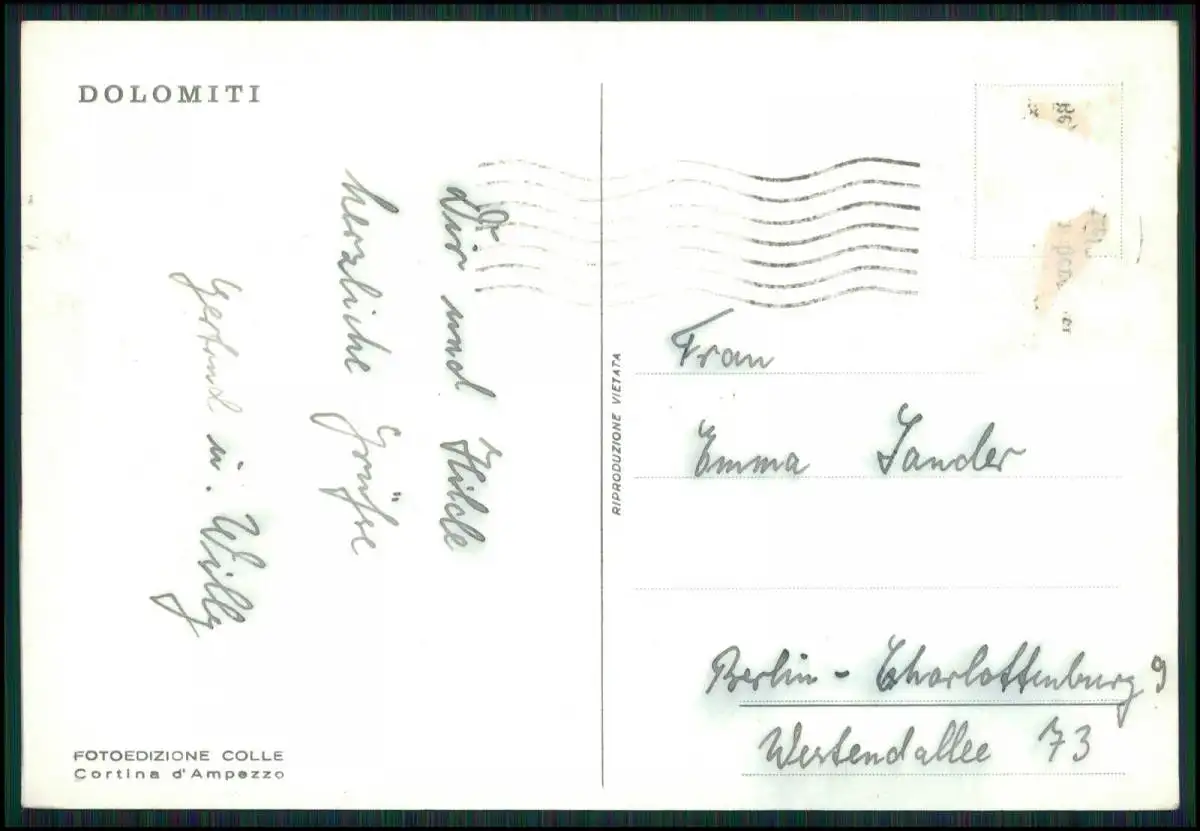 DOLOMITI
Dir und Hilde
herzliche Grüße
Gertrud u. Willy
FOTOEDIZIONE COLLE
Cortina d'Ampezzo
RIPRODUZIONE VIETATA
Frau
Emma Sander
Berlin - Charlottenburg 9
Westendallee 73